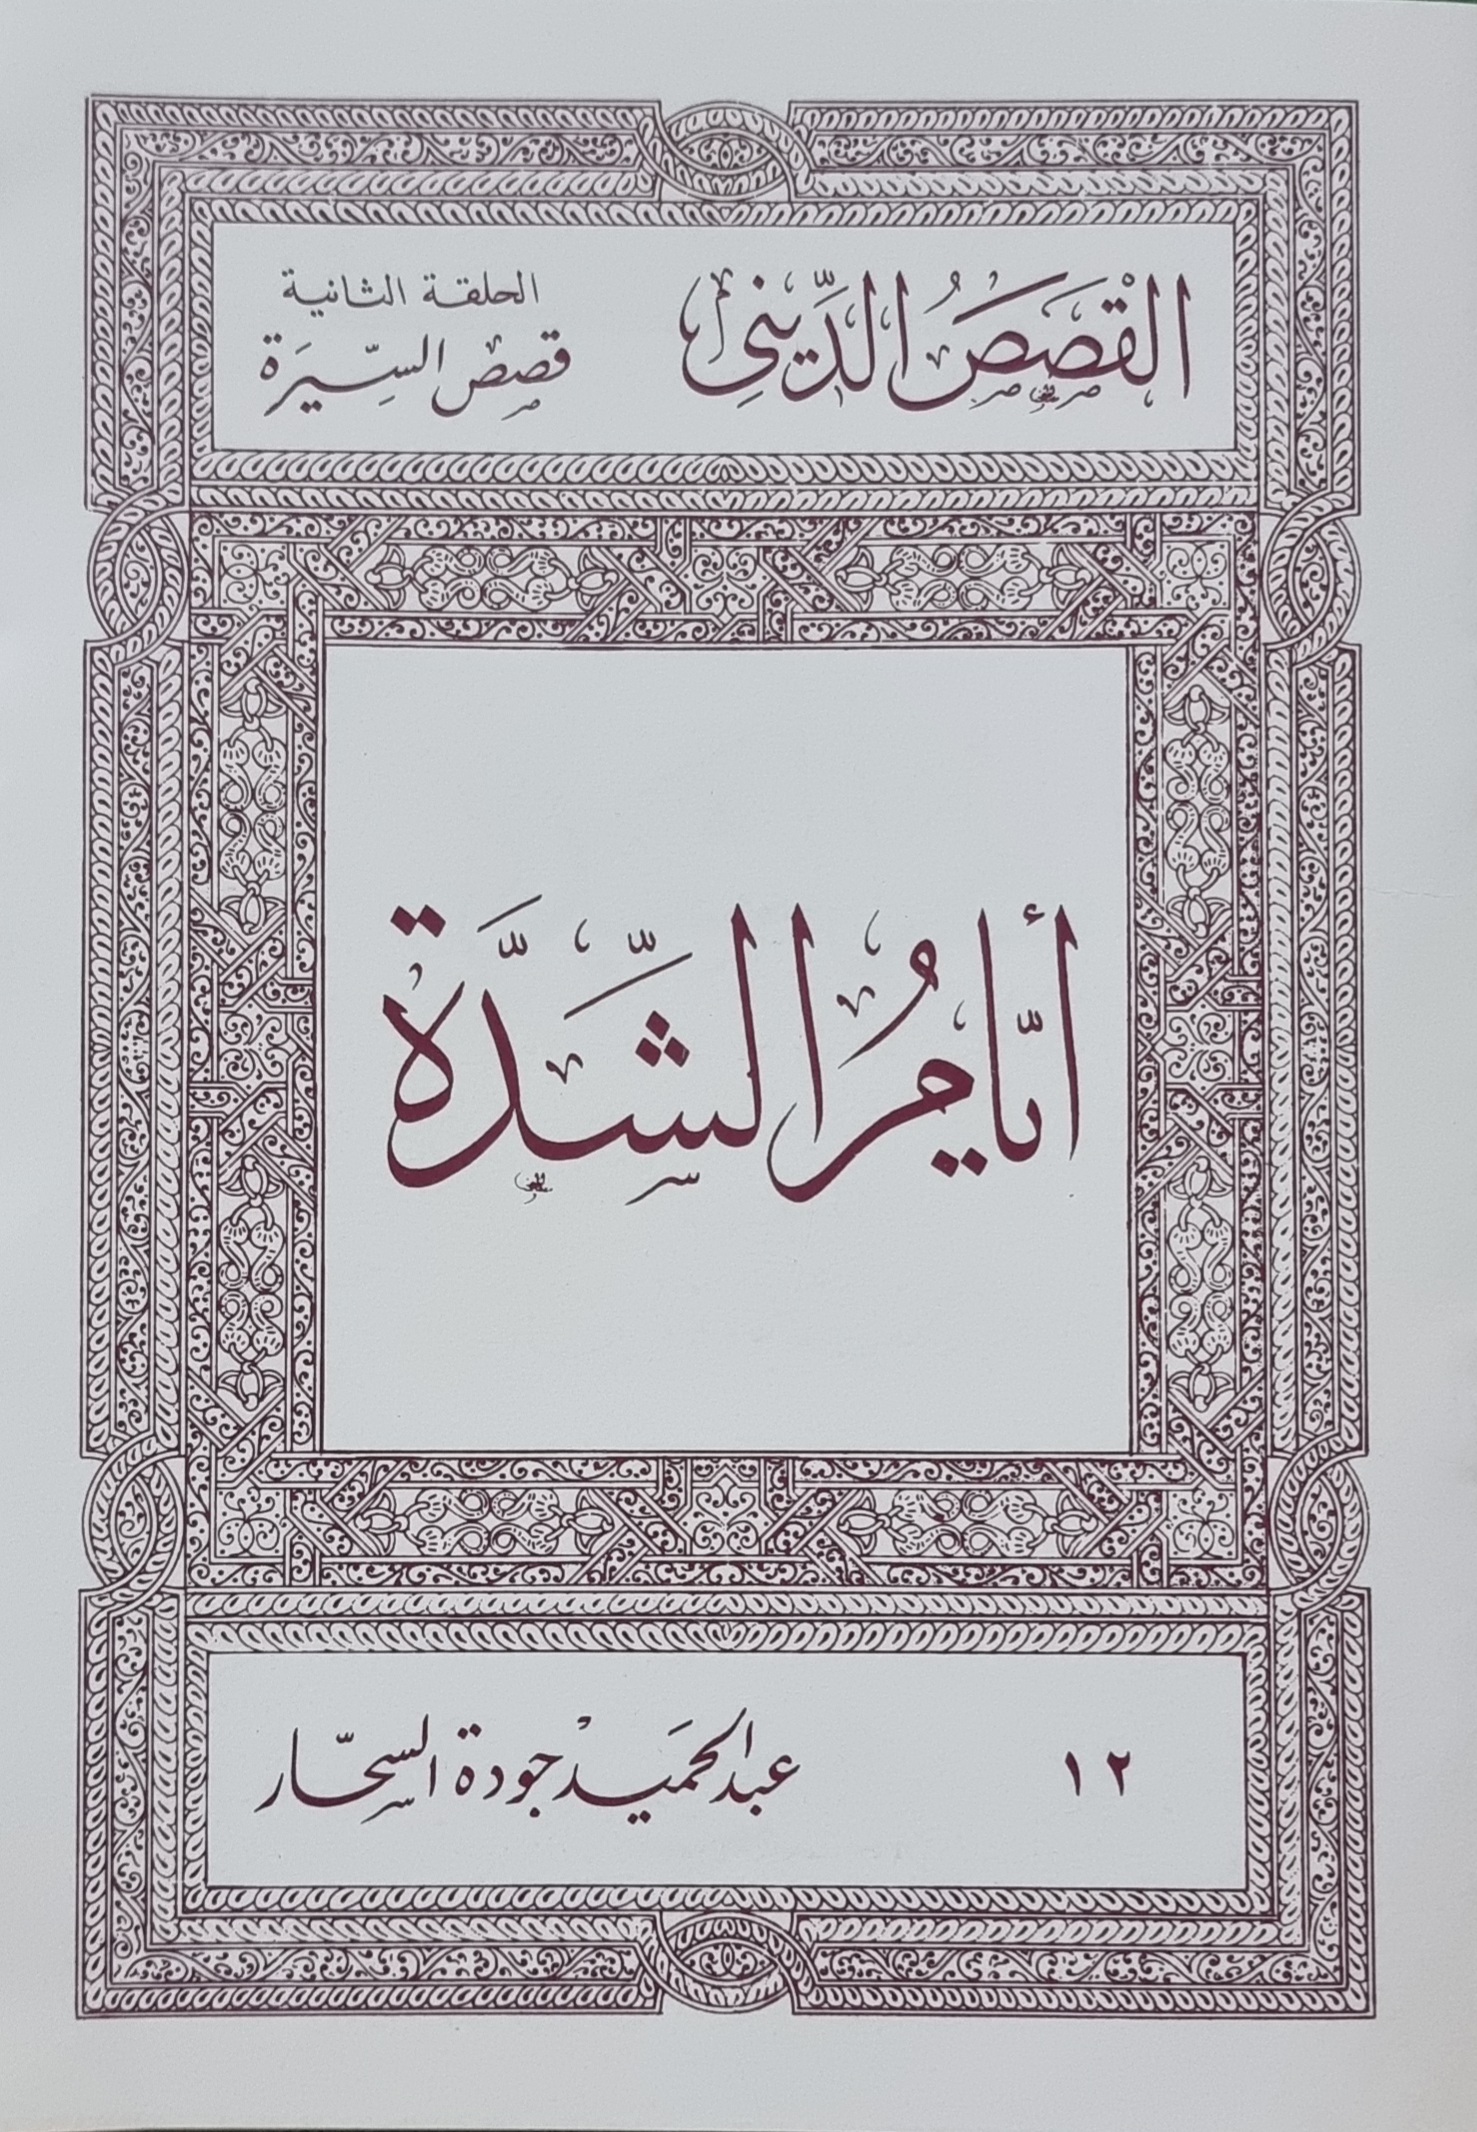 القَصَصُ الدِّينى
الحلقة الثانية
قصص السِّيرَة
أيّامُ الشِّدَّة
١٢
عبد الحميد جودة السحّار